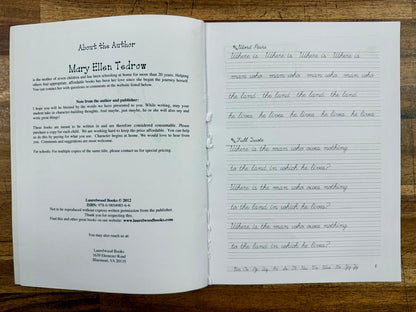 About the Author
Mary Ellen Tedrow
is the mother of seven children and has been schooling at home for more than 20 years. Helping
others find appropriate, affordable books has been her love since she began the journey herself.
You can contact her with questions or comments at the website listed below.
Note from the author and publisher:
I hope you will be blessed by the words we have presented to you. While writing, may your
student take in character-building thoughts. And maybe, just maybe, he or she will also say and
write great things!
These books are meant to be written in and are therefore considered consumable. Please
purchase a copy for each child. We are working hard to keep the price affordable. You can help
us do this by paying for what you use. Character begins at home. We would love to hear from
you. Comments and suggestions are most welcome.
For schools: For multiple copies of the same title, please contact us for special pricing.
Laurelwood Books © 2012
ISBN:
Not to be reproduced without express written permission from the publisher.
Thank you for respecting this.
Find this and other great books on our website, www.laurelwoodbooks.com
You may also reach us at:
Laurelwood Books
1639 Ebenezer Road
Bluemont, VA 20135
Word Pairs
Where is Where is Where is Where is
man who man who man who man who
the land the land the land the land
he lives he lives he lives he lives
Full Quote
Where is the man who owes nothing
to the land in which he lives?
Where is the man who owes nothing
to the land in which he lives?
Where is the man who owes nothing
to the land in which he lives?